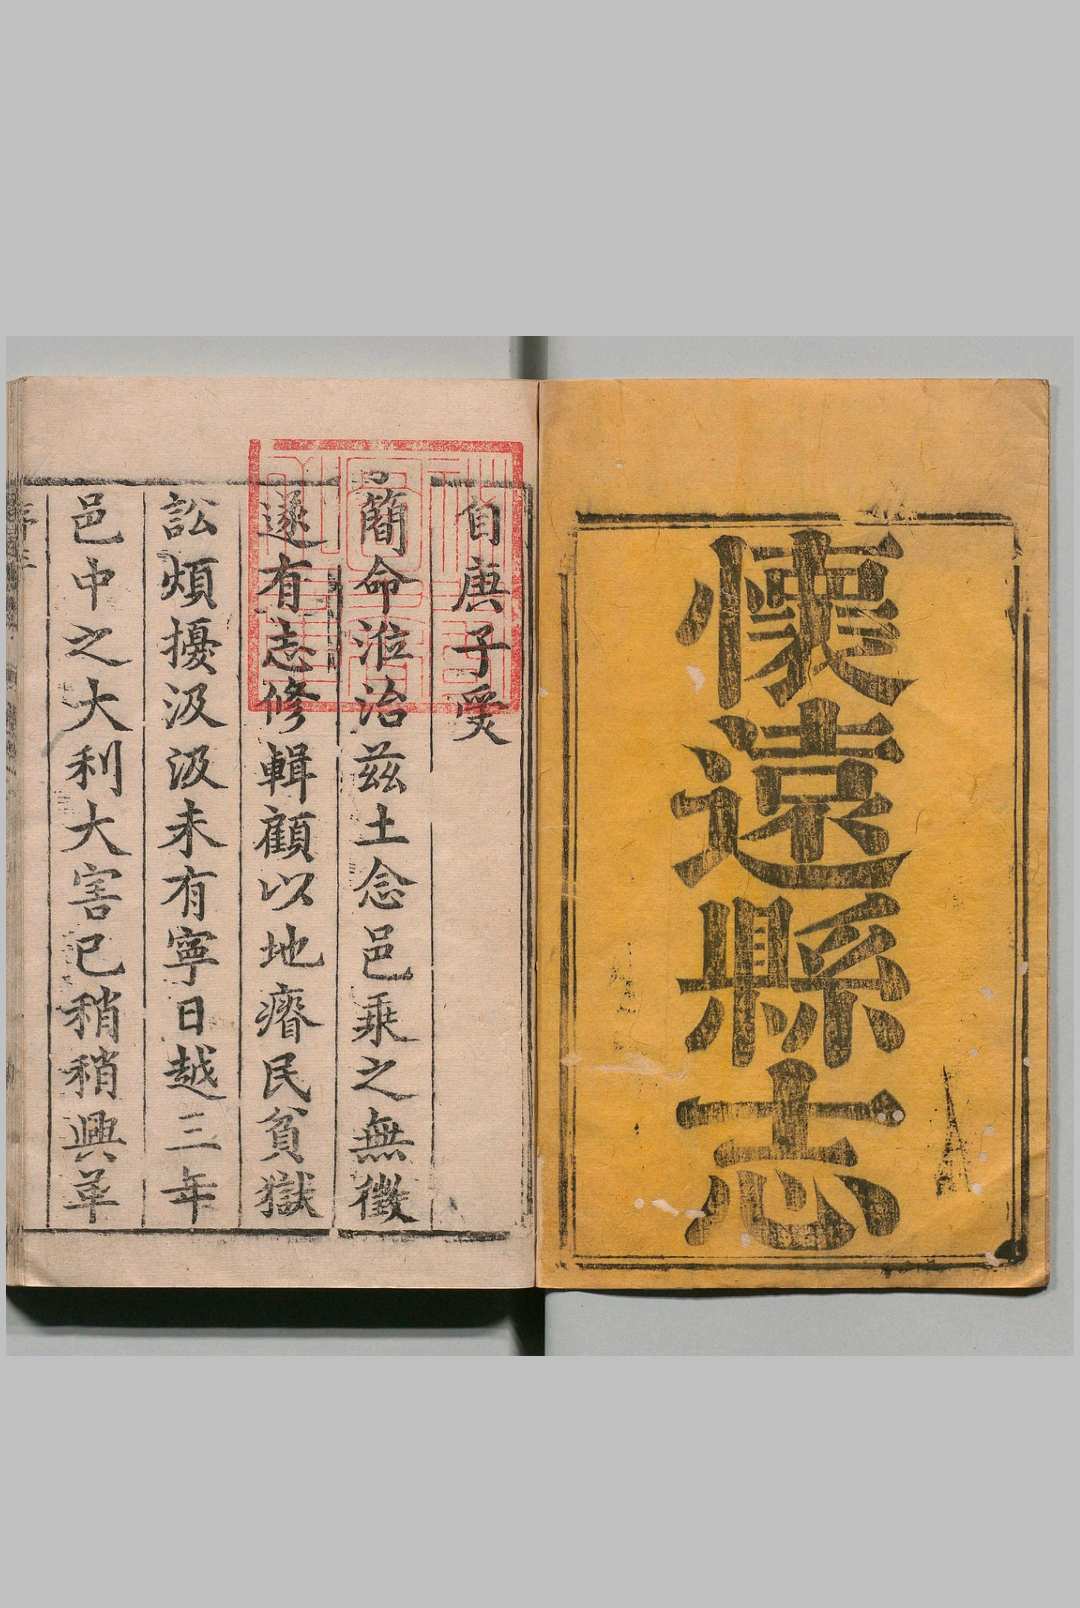 懷遠縣志
自庚子受
簡命涖治茲土念邑乘之無徵
遂有志修輯顧以地瘠民貧獄
訟煩擾汲汲未有寧日越三年
邑中之大利大害已稍稍興革